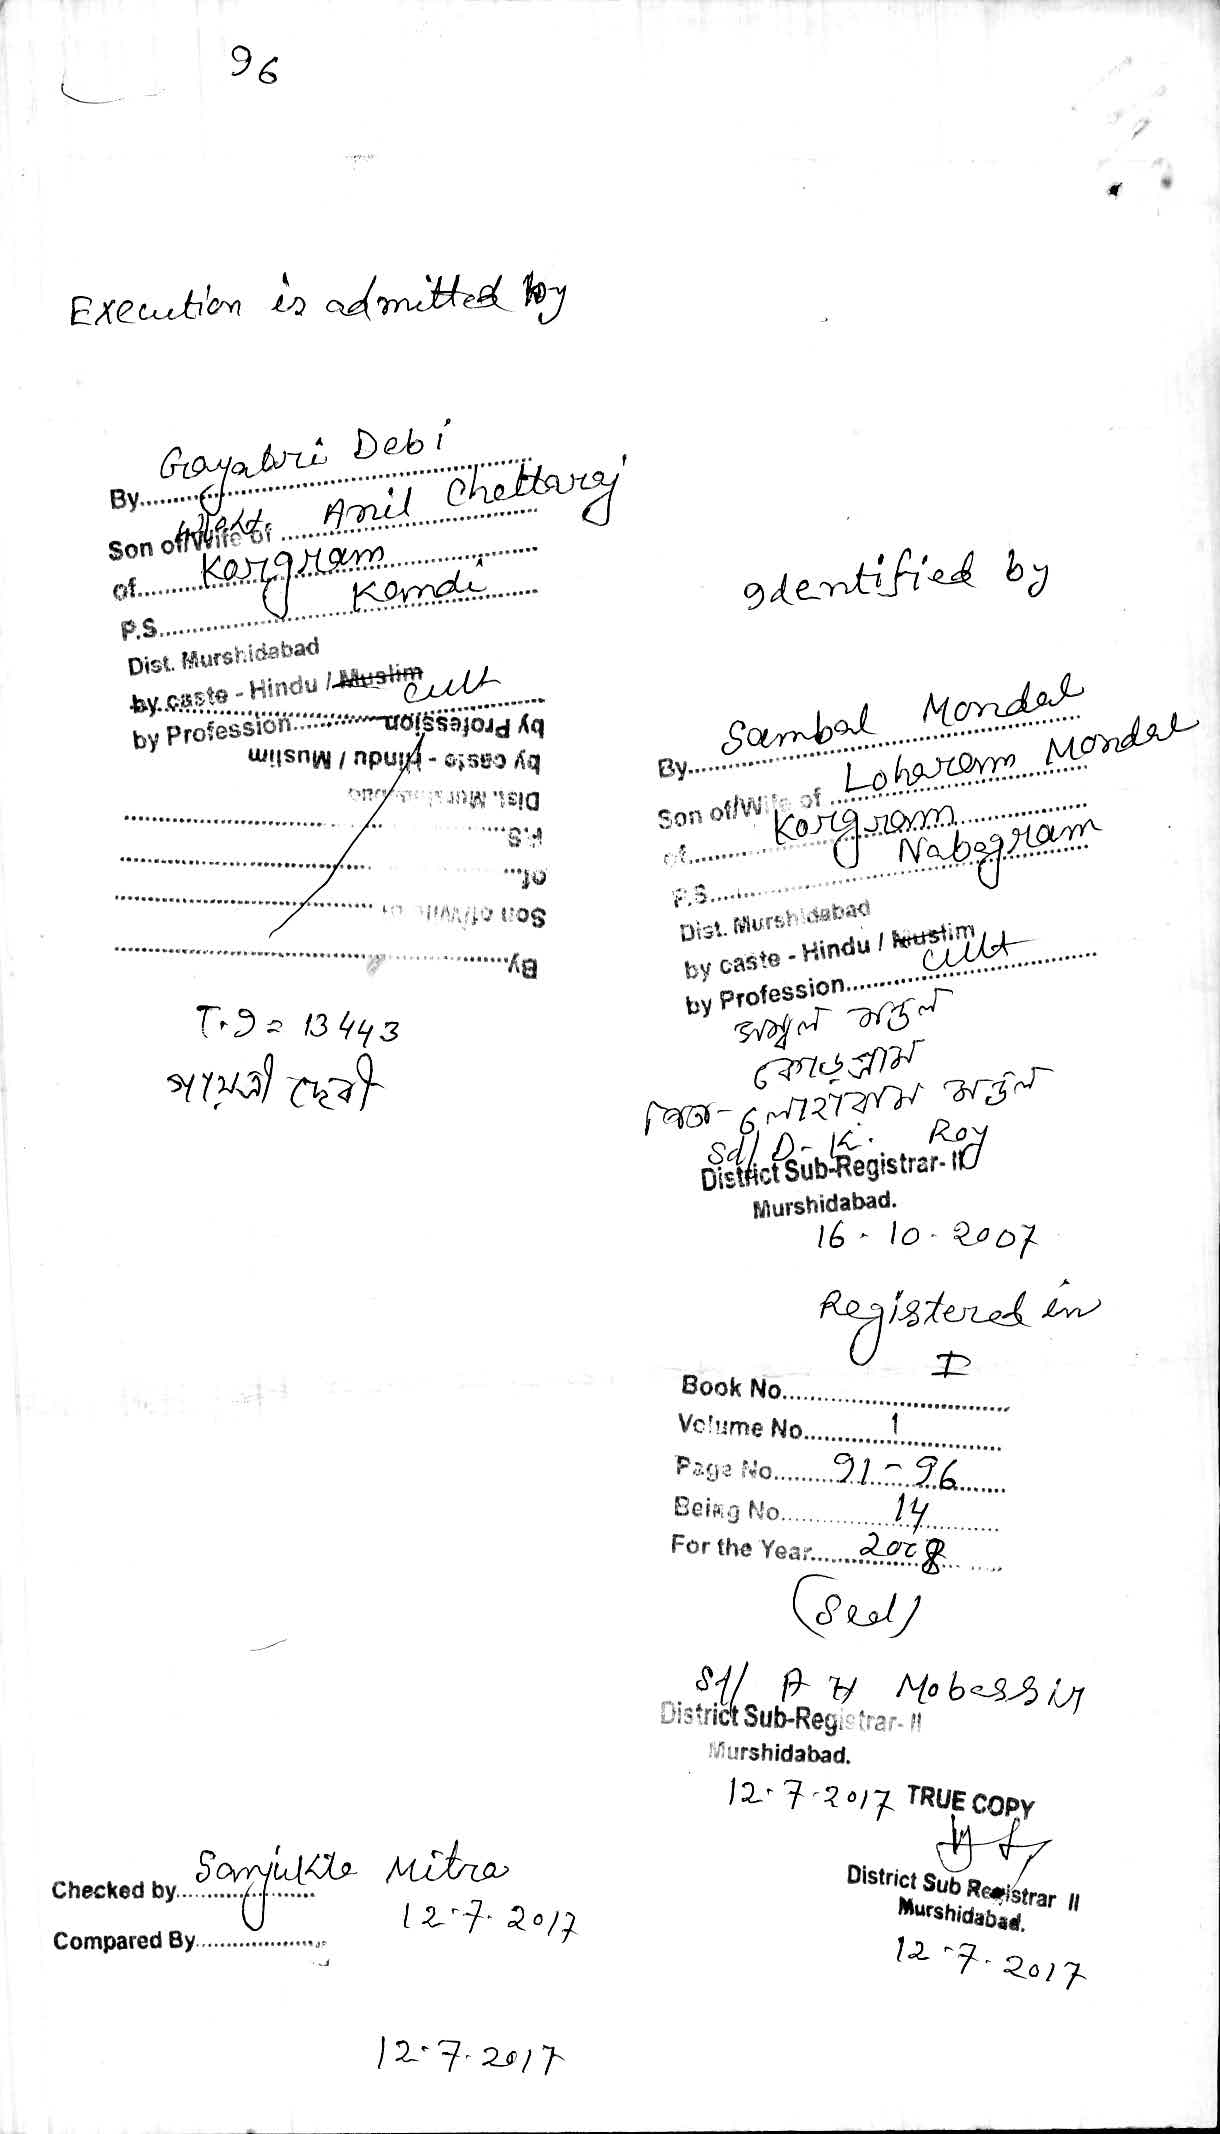 96
Execution is admitted by
By Gayatri Debi
Son of/Wife of Anil Chattaraj
of Korgram
P.S. Kandi
Dist. Murshidabad
by caste - Hindu / Muslim
by Profession Cult
by Profession
by caste - Hindu / Muslim
Dist. Murshidabad
P.S.
of
Son of/Wife of
By
T.I = 13443
গায়ত্রী দেবী
Identified by
By Sambal Mondal
Son of/Wife of Loharam Mondal
of Korgram
P.S. Nabagram
Dist. Murshidabad
by caste - Hindu / Muslim
by Profession Cult
সম্বল মন্ডল
কোড়গ্রাম
পিতা - লোহারাম মন্ডল
Sd/ D. K. Roy
District Sub-Registrar- II
Murshidabad.
16 - 10 - 2007
Registered in
Book No. I
Volume No. 1
Page No. 91 - 96
Being No. 14
For the Year 2008
(Seal)
Sd/ A H Mobassir
District Sub-Registrar- II
Murshidabad.
12.7.2017
TRUE COPY
District Sub Registrar II
Murshidabad.
12.7.2017
Checked by Sanjukta Mitra
12.7.2017
Compared By
12.7.2017